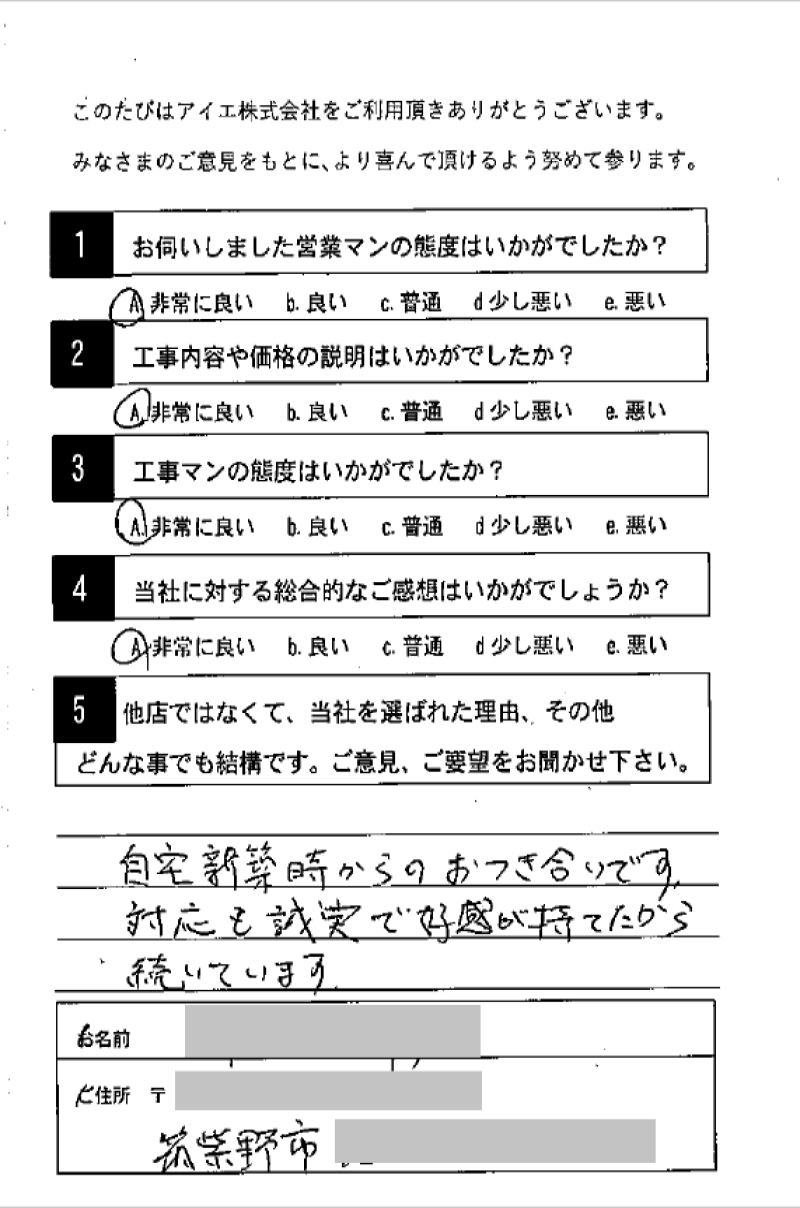 このたびはアイエ株式会社をご利用頂きありがとうございます。
みなさまのご意見をもとに、より喜んで頂けるよう努めて参ります。
1 お伺いしました営業マンの態度はいかがでしたか？
A. 非常に良い b. 良い c. 普通 d 少し悪い e. 悪い
2 工事内容や価格の説明はいかがでしたか？
A. 非常に良い b. 良い c. 普通 d 少し悪い e. 悪い
3 工事マンの態度はいかがでしたか？
A. 非常に良い b. 良い c. 普通 d 少し悪い e. 悪い
4 当社に対する総合的なご感想はいかがでしょうか？
A. 非常に良い b. 良い c. 普通 d 少し悪い e. 悪い
5 他店ではなくて、当社を選ばれた理由、その他
どんな事でも結構です。ご意見、ご要望をお聞かせ下さい。
自宅新築時からのおつき合いです。
対応も誠実で好感が持てたから
続いています。
お名前
ご住所 〒
筑紫野市